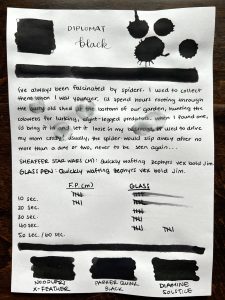 DIPLOMAT
black
I've always been fascinated by spiders. I used to collect
them when I was younger. I'd spend hours rooting through
the dusty old shed at the bottom of our garden, hunting the
colours for lurking, eight-legged predators. When I found one,
I'd bring it in and let it loose in my bedroom. It used to drive
my mom crazy. Usually, the spider would slip away after no
more than a day or two, never to be seen again...
SHEAFFER STAR WARS (M): Quickly wafting zephyrs vex bold Jim.
GLASS PEN: Quickly wafting zephyrs vex bold Jim.
F.P. (M) GLASS
10 SEC.
20 SEC.
30 SEC.
40 SEC.
50 SEC. / 60 SEC.
NOODLERS
X-FEATHER
PARKER QUINK
BLACK
DIAMINE
SOLSTICE